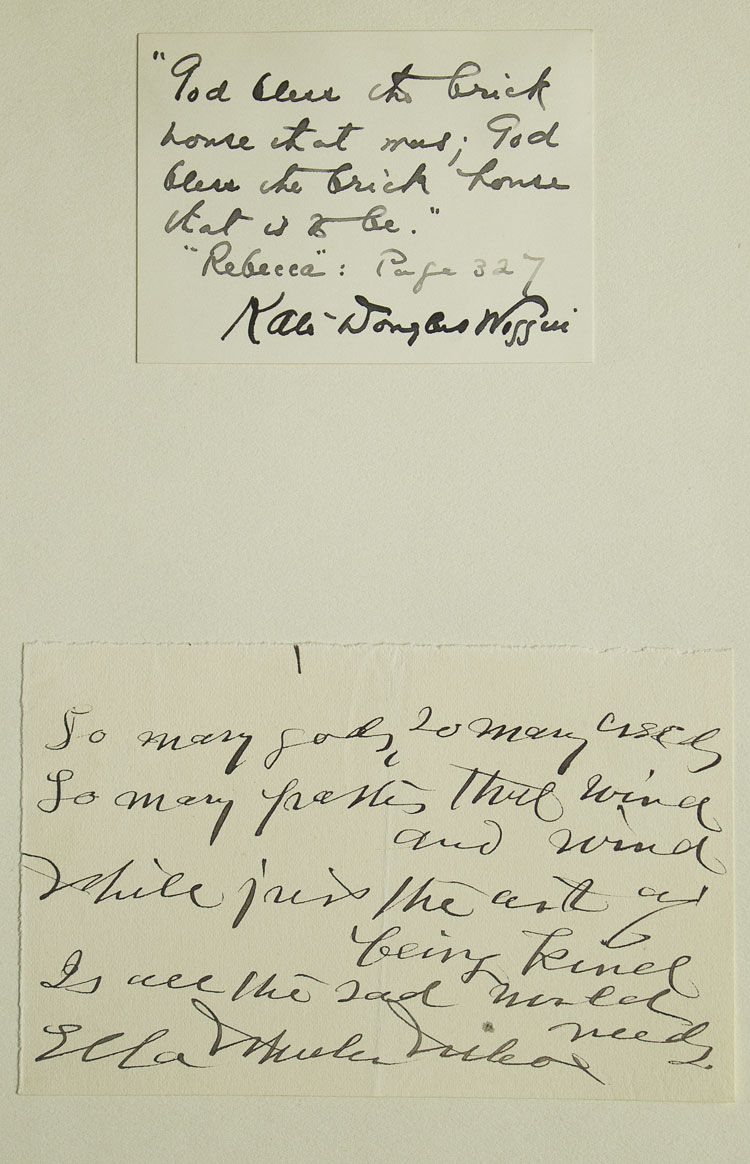 "God bless the brick
house that was; God
bless the brick house
that is to be."
"Rebecca": Page 327
Kate Douglas Wiggin
So many gods, so many creeds
So many paths that wind
and wind
While just the art of
being kind
Is all the sad world
needs.
Ella Wheeler Wilcox